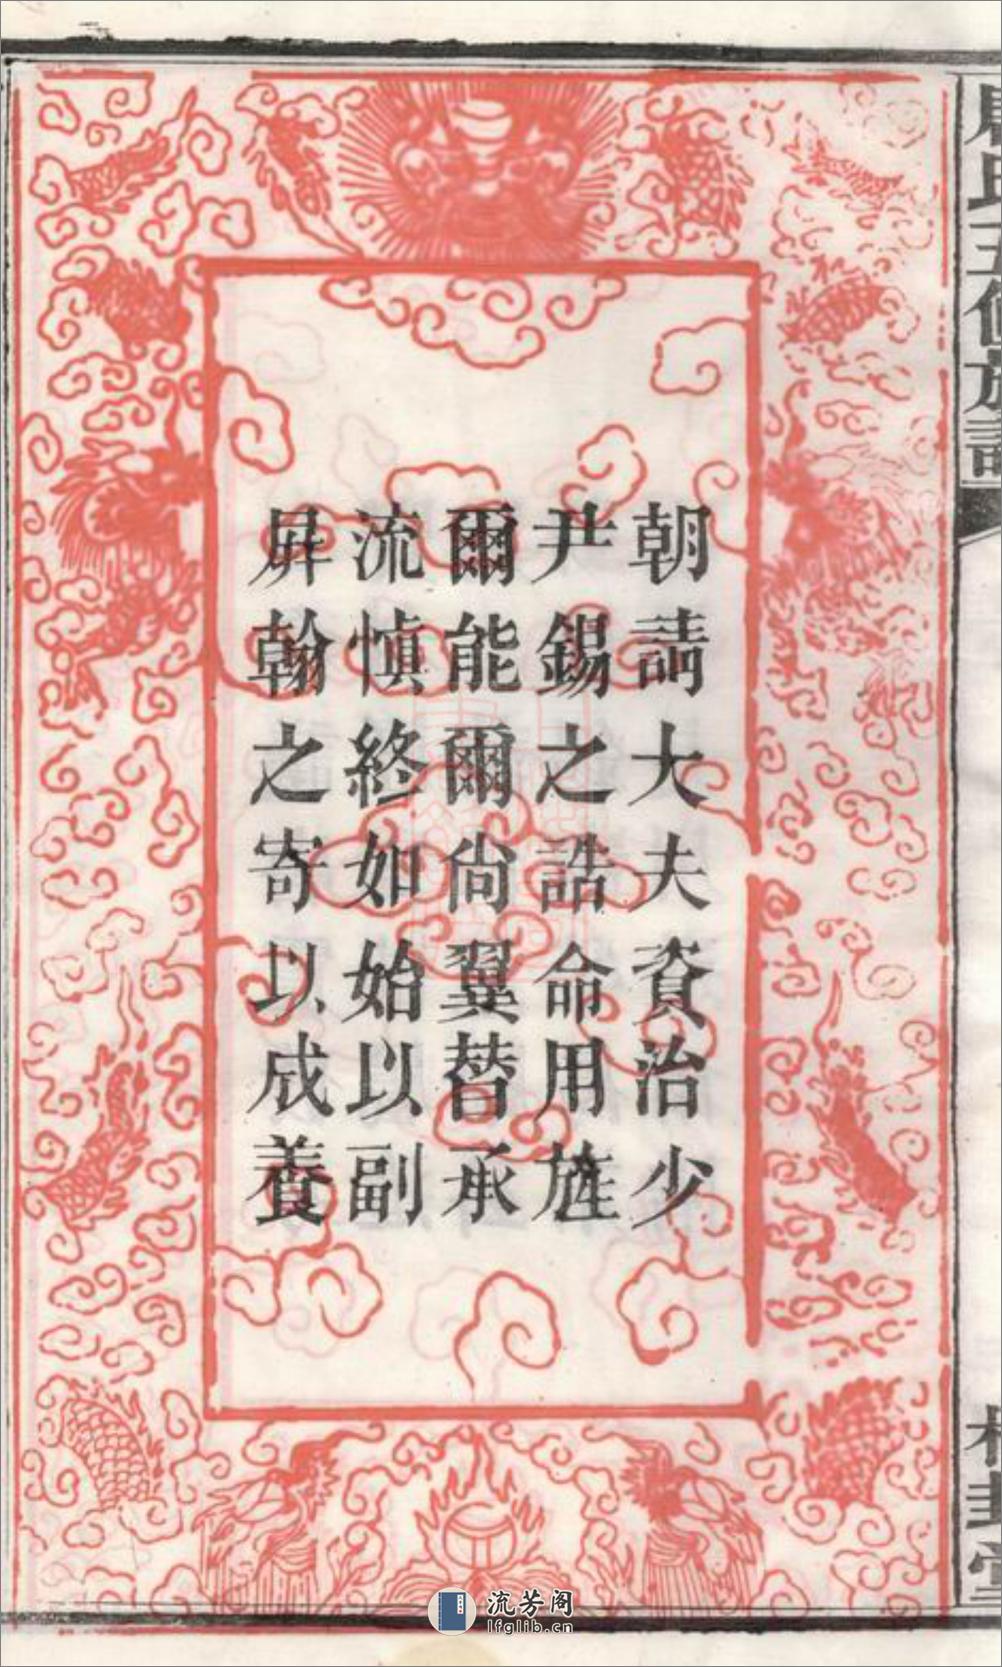 朝請大夫資治少
尹錫之誥命用旌
爾能爾尙翼替承
流慎終如始以副
屛翰之寄以成養
流芳阁
lfglib.cn